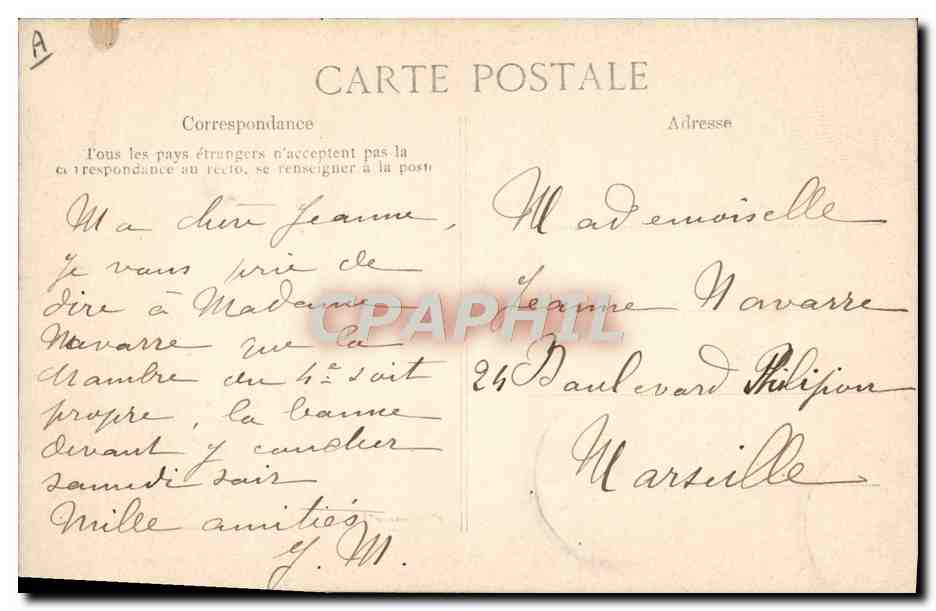 A
CARTE POSTALE
Correspondance
Tous les pays étrangers n'acceptent pas la
correspondance au recto, se renseigner à la poste
Ma chère Jeanne,
Je vous prie de
dire à Madame
Navarre que la
chambre du 4e soit
propre, la bonne
devant y coucher
samedi soir
Mille amitiés
J. M.
Adresse
Mademoiselle
Jeanne Navarre
24 Boulevard Philipon
Marseille
CPAPHIL